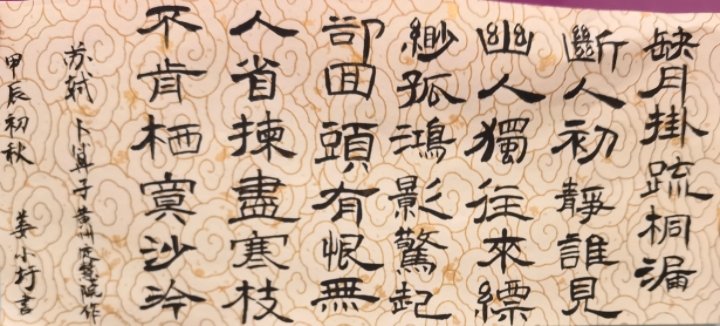 缺月掛疏桐漏
斷人初靜誰見
幽人獨往來縹
緲孤鴻影驚起
卻回頭有恨無
人省揀盡寒枝
不肯栖寞沙泠
苏轼 卜算子 黄州定慧院作
甲辰初秋 娄小圩書